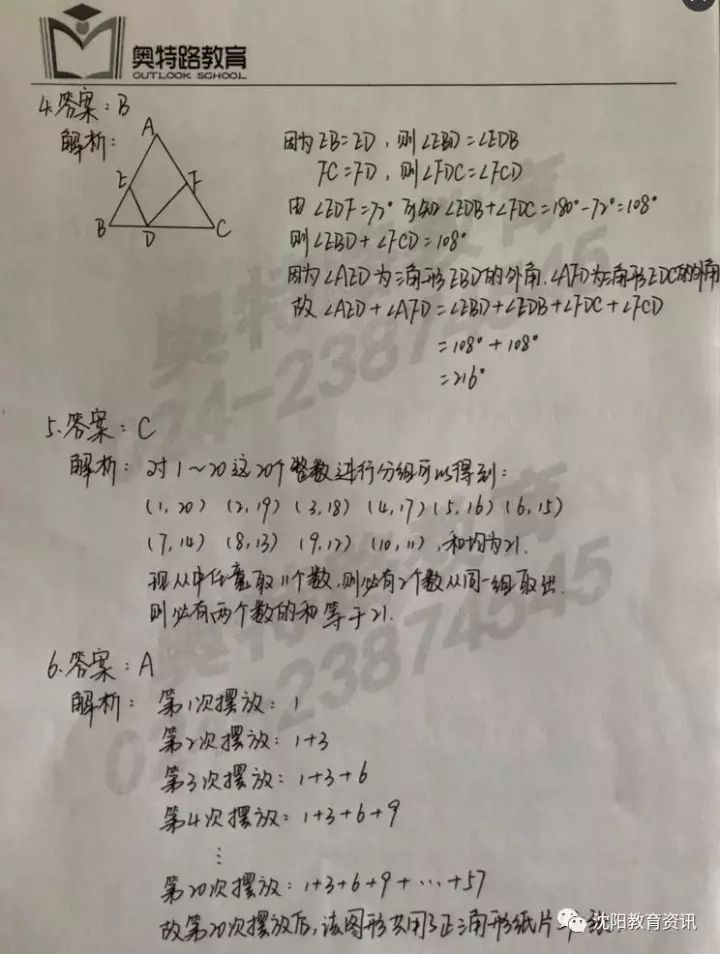 奥特路教育
OUTLOOK SCHOOL
4.答案：B
解析：
A
E
F
B
D
C
因为EB=ED，则∠EBD=∠EDB
FC=FD，则∠FDC=∠FCD
由∠EDF=72°可知∠EDB+∠FDC=180°-72°=108°
则∠EBD+∠FCD=108°
因为∠AED为三角形EBD的外角，∠AFD为三角形EDC的外角
故∠AED+∠AFD=∠EBD+∠EDB+∠FDC+∠FCD
=108°+108°
=216°
5.答案：C
解析：对1~20这20个整数进行分组可以得到：
(1,20) (2,19) (3,18) (4,17) (5,16) (6,15)
(7,14) (8,13) (9,12) (10,11)，和均为21.
现从中任意取11个数，则必有2个数从同一组取出.
则必有两个数的和等于21.
6.答案：A
解析：第1次摆放：1
第2次摆放：1+3
第3次摆放：1+3+6
第4次摆放：1+3+6+9
⋮
第20次摆放：1+3+6+9+…+57
故第20次摆放后，该图形共用了正三角形纸片
沈阳教育资讯
024-23874545